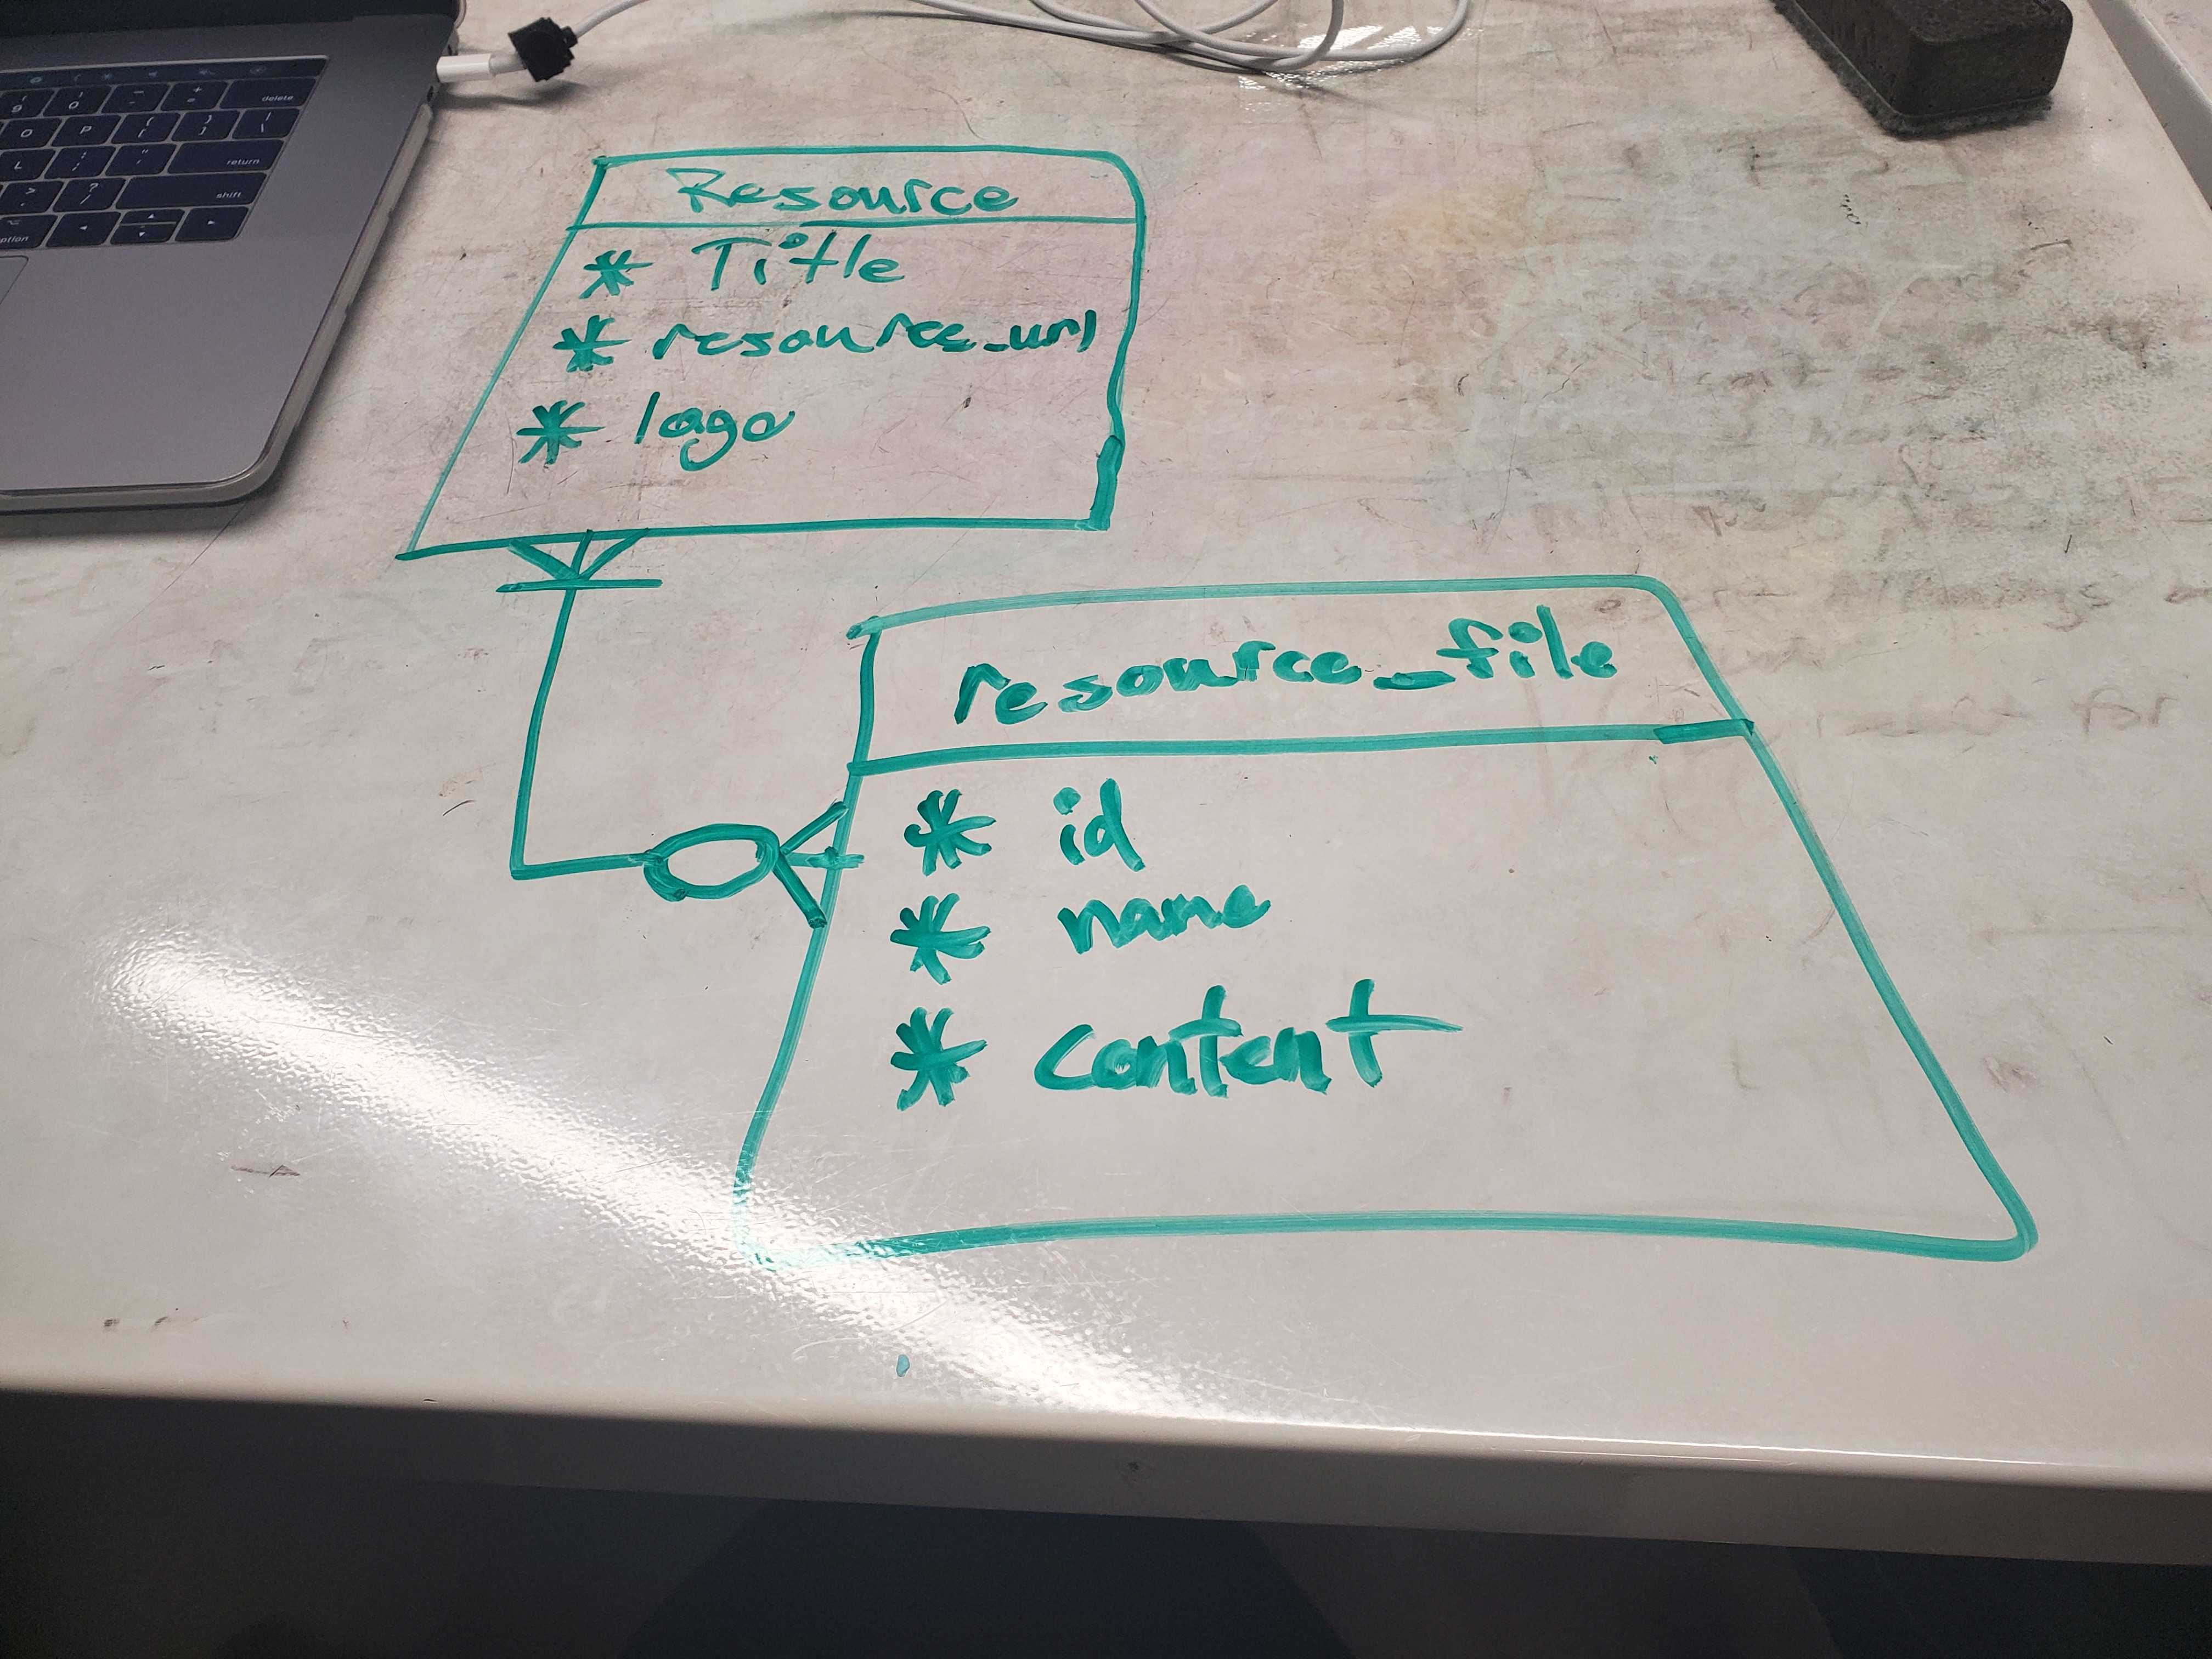 delete
return
shift
option
Resource
* Title
* resource_url
* logo
resource_file
* id
* name
* content
for